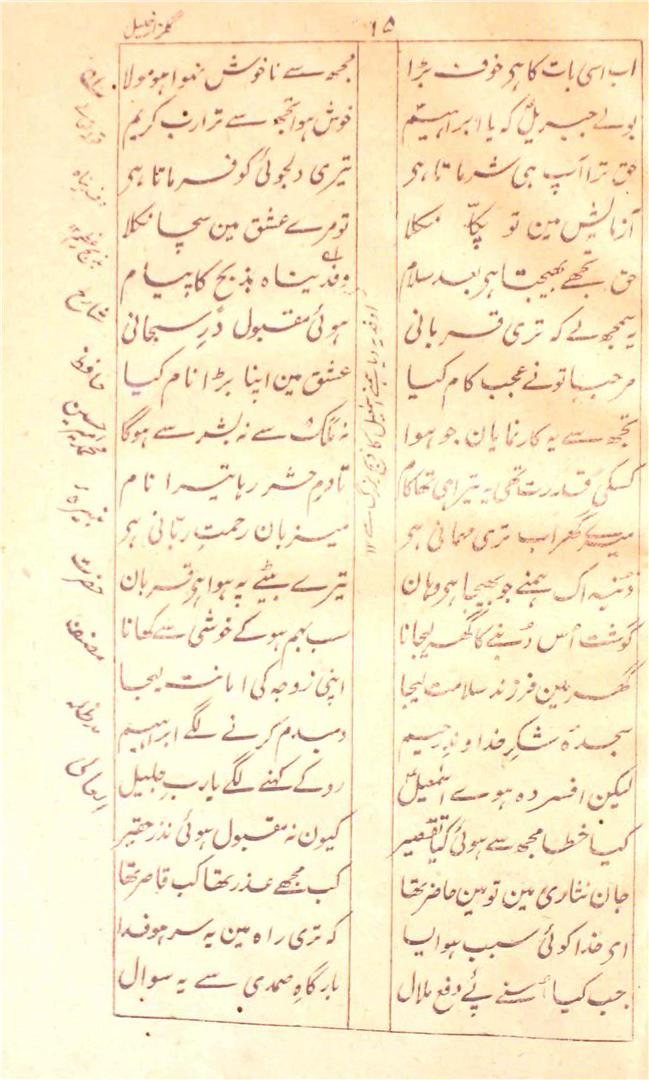 ۱۵
گلزار خلیل
اب اسی بات کا ہی خوف بڑا
مجھ سے ناخوش نہوا ہو مولا
بولے جبریل کہ یا ابراہیم
خوش ہوا تجھ سے ترا رب کریم
حق ترا آپ ہی شرماتا ہی
تیری دلجوئی کو فرماتا ہی
آزمایش مین تو پکّا نکلا
تو مرے عشق مین سچا نکلا
حق تجھے بھیجتا ہی بعد سلام
وفدیناہ بذبح کا پیام
یہ سمجھ لے کہ تری قربانی
ہوئی مقبول درِ سبحانی
مرحبا تو نے عجب کام کیا
عشق مین اپنا بڑا نام کیا
تجھ سے یہ کار نمایان جو ہوا
نہ ملک سے نہ بشر سے ہوگا
کسکی قدرت تھی یہ تیرا ہی تھا کام
تا دمِ حشر رہا تیرا نام
میرے گھر اب تری مہمانی ہی
میزبان رحمتِ ربّانی ہی
دنبہ اک ہمنے جو بھیجا ہی وہان
تیرے بیٹے پہ ہوا ہی قربان
گوشت اُس دُنبے کا گھر لیجانا
سب بہم ہوکے خوشی سے کھانا
گھر مین فرزند سلامت لیجا
اپنی زوجہ کی امانت لیجا
سجدہ شکرِ خداوندِ رحیم
دمبدم کرنے لگے ابراہیم
لیکن افسردہ ہوے اسمٰعیل
روکے کہنے لگے یا ربِ جلیل
کیا خطا مجھ سے ہوئی کیا تقصیر
کیون نہ مقبول ہوئی نذر حقیر
جان نثاری مین تو مین حاضر تھا
کب مجھے عذر تھا کب قاصر تھا
ای خدا کوئی سبب ہو ایسا
کہ تری راہ مین یہ سر ہو فدا
جب کیا اُسنے پئے دفع ملال
بارگاہِ صمدی سے یہ سوال
اور فدیہ دیا ہمنے اسمٰعیل کا ذبح بزرگ سے ۱۲
شارح
حافظ
محمد امیر حسین
نبیرہ
حضرت
مصنف
مدظلہ
العالی